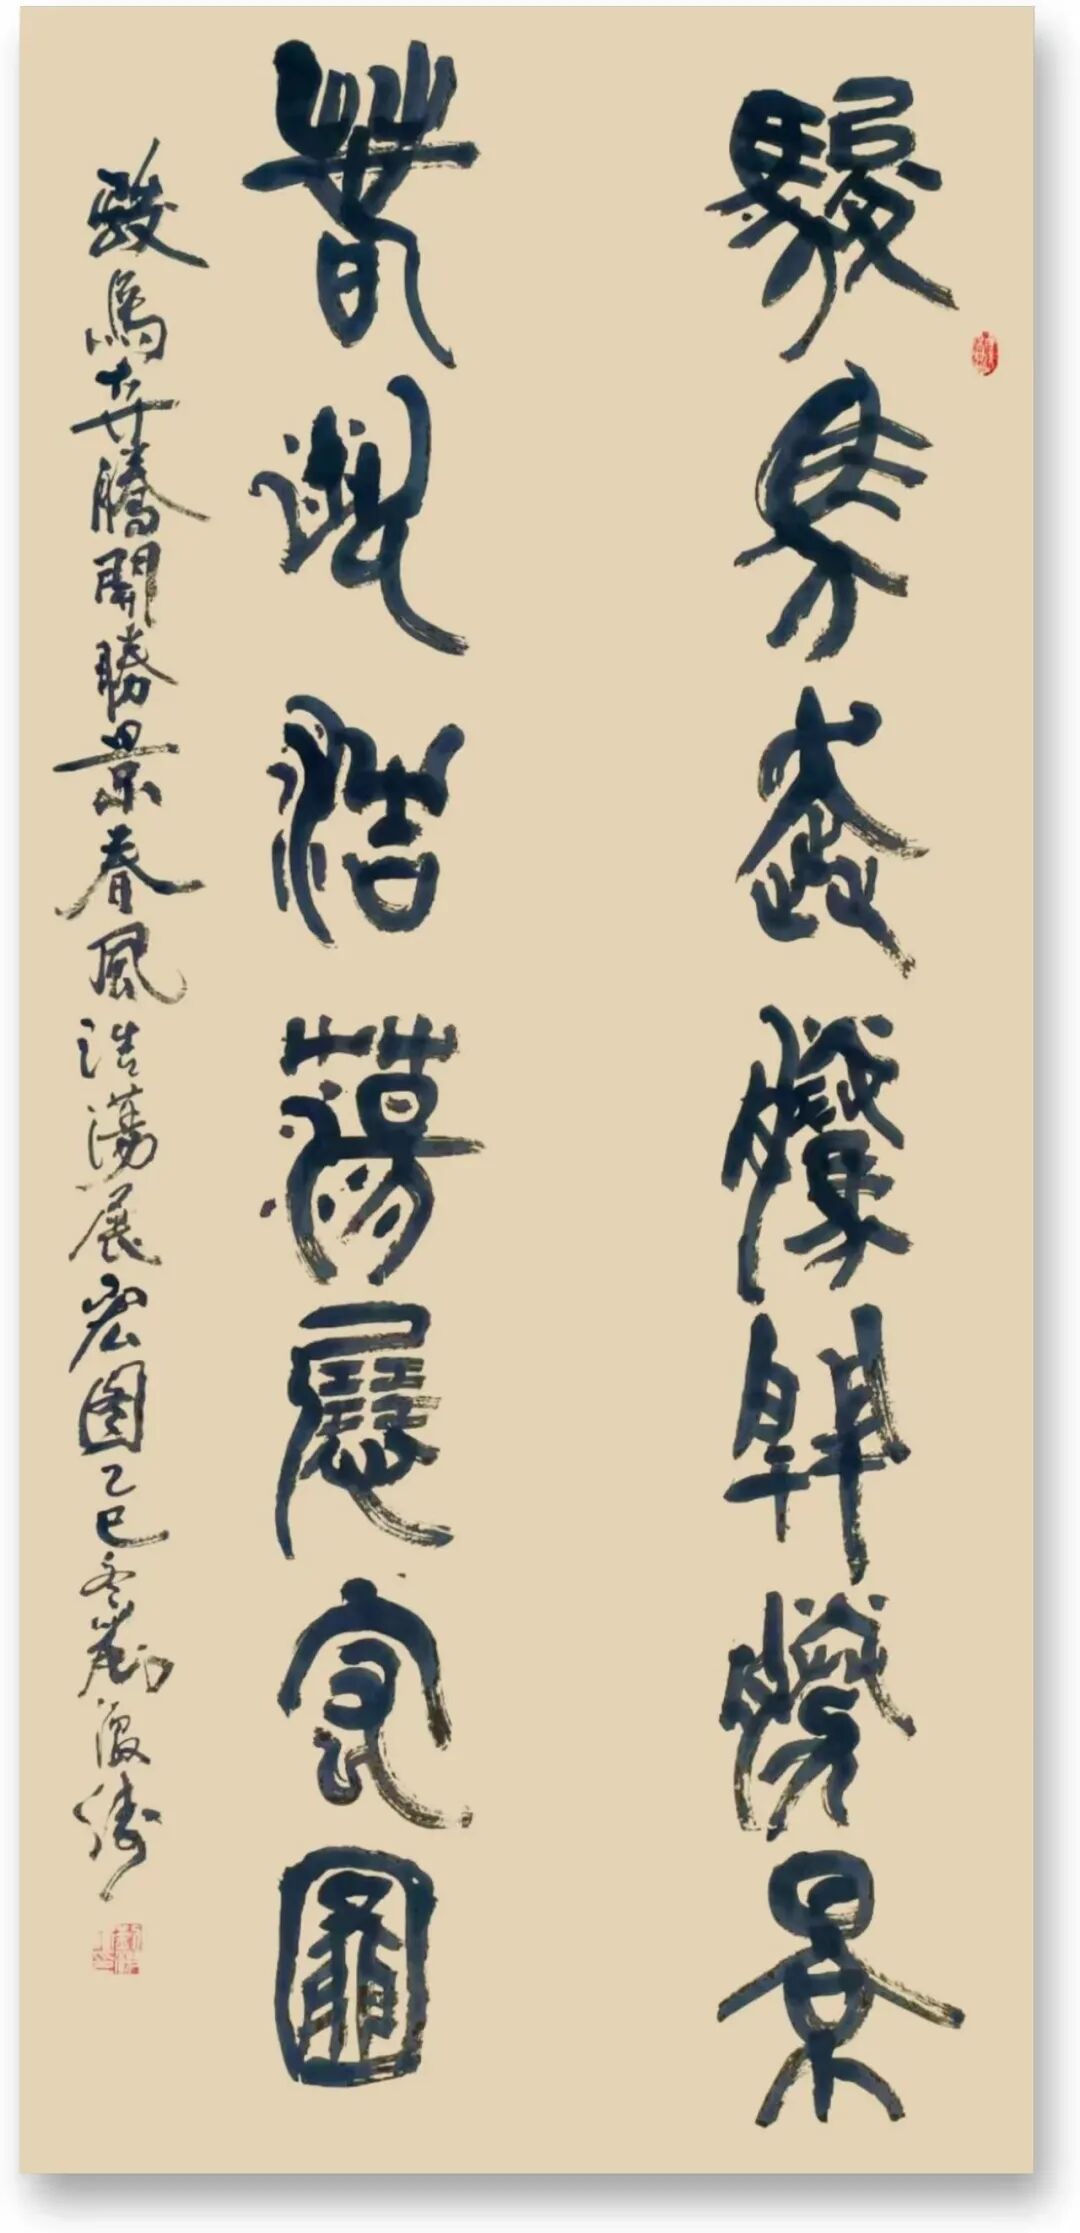 駿馬奔騰開勝景
春風浩蕩展宏圖
駿馬奔騰開勝景春風浩蕩展宏图乙巳冬劉波濤